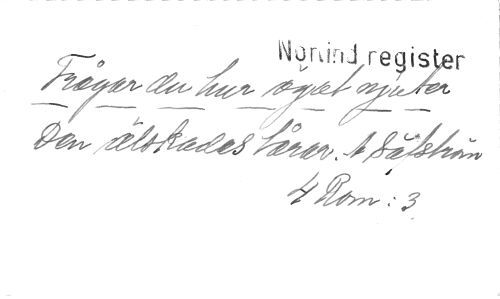 Nomind.register
Frågar du hur ögat njuter
Den älskades tårar. A Säfström
4 Rom: 3